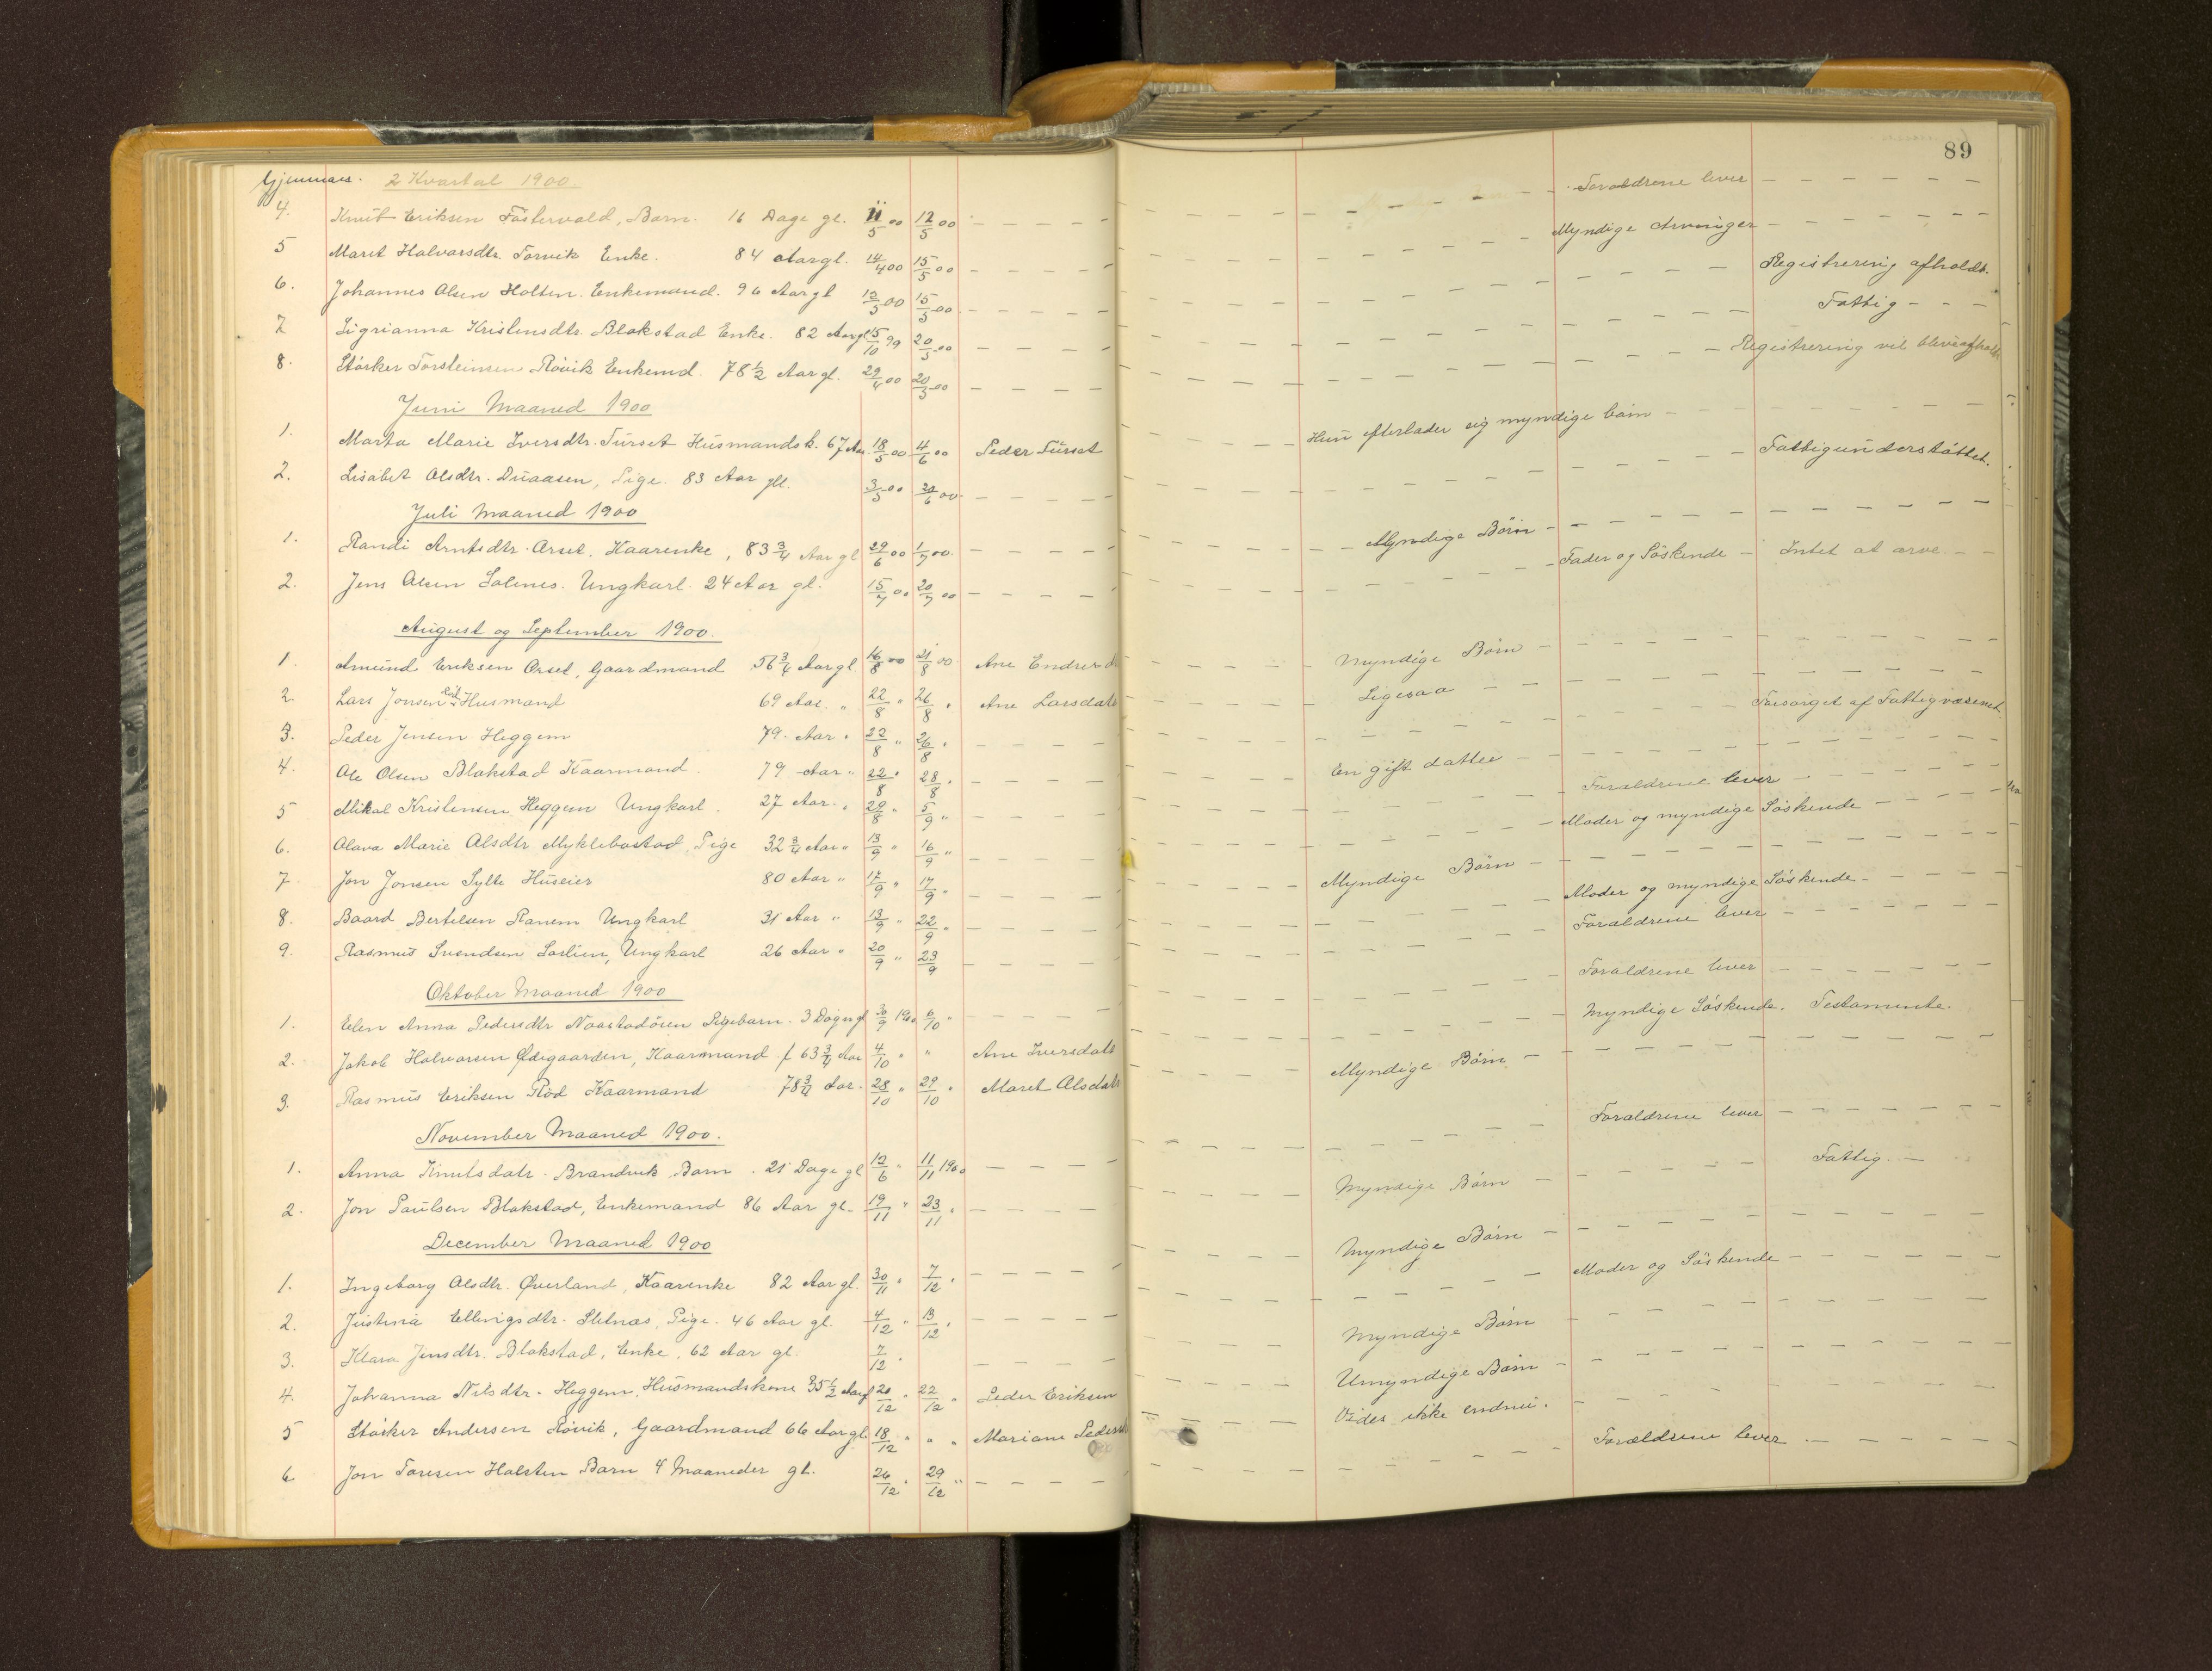 89
Gjemnæs. 2 Kvartal 1900.
4. Knut Eriksen Fostervold, Barn. 16 Dage gl. 11/5 00 12/5 00 Forældrene lever
5 Marit Halvorsdtr. Torvik Enke. 84 Aar gl. 14/4 00 15/5 00 Myndige Arvinger
6. Johannes Olsen Holten. Enkemand. 96 Aar gl 12/5 00 15/5 00 Registrering afholdt.
7 Sigrianna Kristensdtr. Blakstad Enke. 82 Aar gl 15/10 99 20/5 00 Fattig
8. Störker Torsteinsen Rövik Enkemd. 78 1/2 Aar gl. 29/4 00 20/5 00 Registrering vil blive afholdt
Juni Maaned 1900
1. Marta Marie Iversdtr. Turset Husmandsk. 67 Aar 18/5 00 4/6 00 Peder Turset Hun efterlader sig myndige börn
2. Lisabet Olsdtr. Duaasen, Pige. 83 Aar gl. 3/5 00 /6 00 Fattigunderstöttet.
Juli Maaned 1900
1. Randi Arntsdtr. Orset, Kaarenke, 83 3/4 Aar gl 29/6 00 1/7 00 Myndige Börn
2. Jens Olsen Solenes. Ungkarl. 24 Aar gl. 15/7 00 20/7 00 Fader og Söskende Intet at arve.
August og September 1900.
1. Amund Eriksen Orset, Gaardmand 56 3/4 Aar gl. 16/8 00 21/8 00 Ane Endresd Myndige Börn
2. Lars Jonsen Husmand 69 Aar. " 22/8 " 26/8 " Ane Larsdatr Ligesaa
3. Peder Jensen Heggem 79. Aar " 22/8 " 26/8 " Forsörget af Fattigvæsenet
4. Ole Olsen Blakstad Kaarmand. 79 Aar " 22/8 " 28/8 " En gift datter
5 Mikal Kristensen Heggem Ungkarl. 27 Aar. " 29/8 " 5/9 " Forældrene lever
6. Olava Marie Olsdtr Myklebostad, Pige 32 3/4 Aar " 13/9 " 16/9 " Moder og myndige Söskende
7. Jon Jonsen Sylte Huseier 80 Aar " 17/9 " 17/9 " Myndige Börn
8. Baard Bertelsen Ranem Ungkarl 31 Aar " 13/9 " 22/9 " Moder og myndige Söskende
9. Rasmus Svendsen Sorlien, Ungkarl 26 Aar " 20/9 " 23/9 Forældrene lever
Oktober Maaned 1900
1. Elen Anna Pedersdtr Naastadören Pigebarn. 3 Dögn gl 30/9 1900 6/10 " Forældrene lever
2. Jakob Halvorsen Ödegaarden, Kaarmand f 63 3/4 Aar 4/10 " " Ane Iversdatr Myndige Söskende. Testamente.
3. Rasmus Eriksen Röd Kaarmand 78 3/4 Aar. 28/10 " 29/10 " Marit Olsdatr Myndige Börn
November Maaned 1900.
1. Anna Knutsdatr. Brandvik, Barn. 21 Dage gl 12/6 " 11/11 1900 Forældrene lever
2. Jon Paulsen Blakstad, Enkemand 86 Aar gl. 19/11 " 23/11 " Myndige Börn Fattig.
December Maaned 1900
1. Ingeborg Olsdtr. Överland, Kaarenke 82 Aar gl. 30/11 " 7/12 " Myndige Börn
2. Justina Ellingsdtr. Stenæs, Pige. 46 Aar gl. 4/12 " 13/12 " Moder og Söskende
3. Klara Jensdtr. Blakstad, Enke, 62 Aar gl. 7/12 " Myndige Börn
4. Johanna Nilsdtr. Heggem, Husmandskone 35 1/2 Aar gl 20/12 " 22/12 " Peder Eriksen Umyndige Börn
5 Störker Andersen Rövik, Gaardmand 66 Aar gl 18/12 " " " Mariane Pedersd Vides ikke endnu.
6 Jon Toresen Halsten Barn 4 Maaneder gl. 26/12 " 29/12 " Forældrene lever